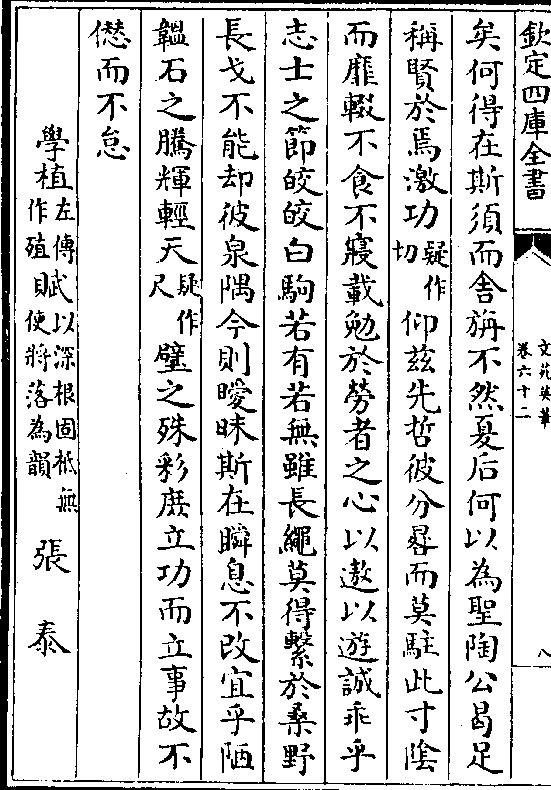 欽定四庫全書
文苑英華
卷六十二
八
矣何得在斯須而舍旃不然夏后何以為聖陶公曷足
稱賢於焉激功疑作切仰兹先哲彼分晷而莫駐此寸陰
而靡輟不食不寢載勉於勞者之心以遨以遊誠乖乎
志士之節皎皎白駒若有若無雖長繩莫得繫於桑野
長戈不能却彼泉隅今則曖昧斯在瞬息不改宜乎陋
韞石之騰輝輕天疑作尺璧之殊彩庶立功而立事故不
僁而不怠
學植左傳作殖賦以深根固柢無使將落為韻 張泰